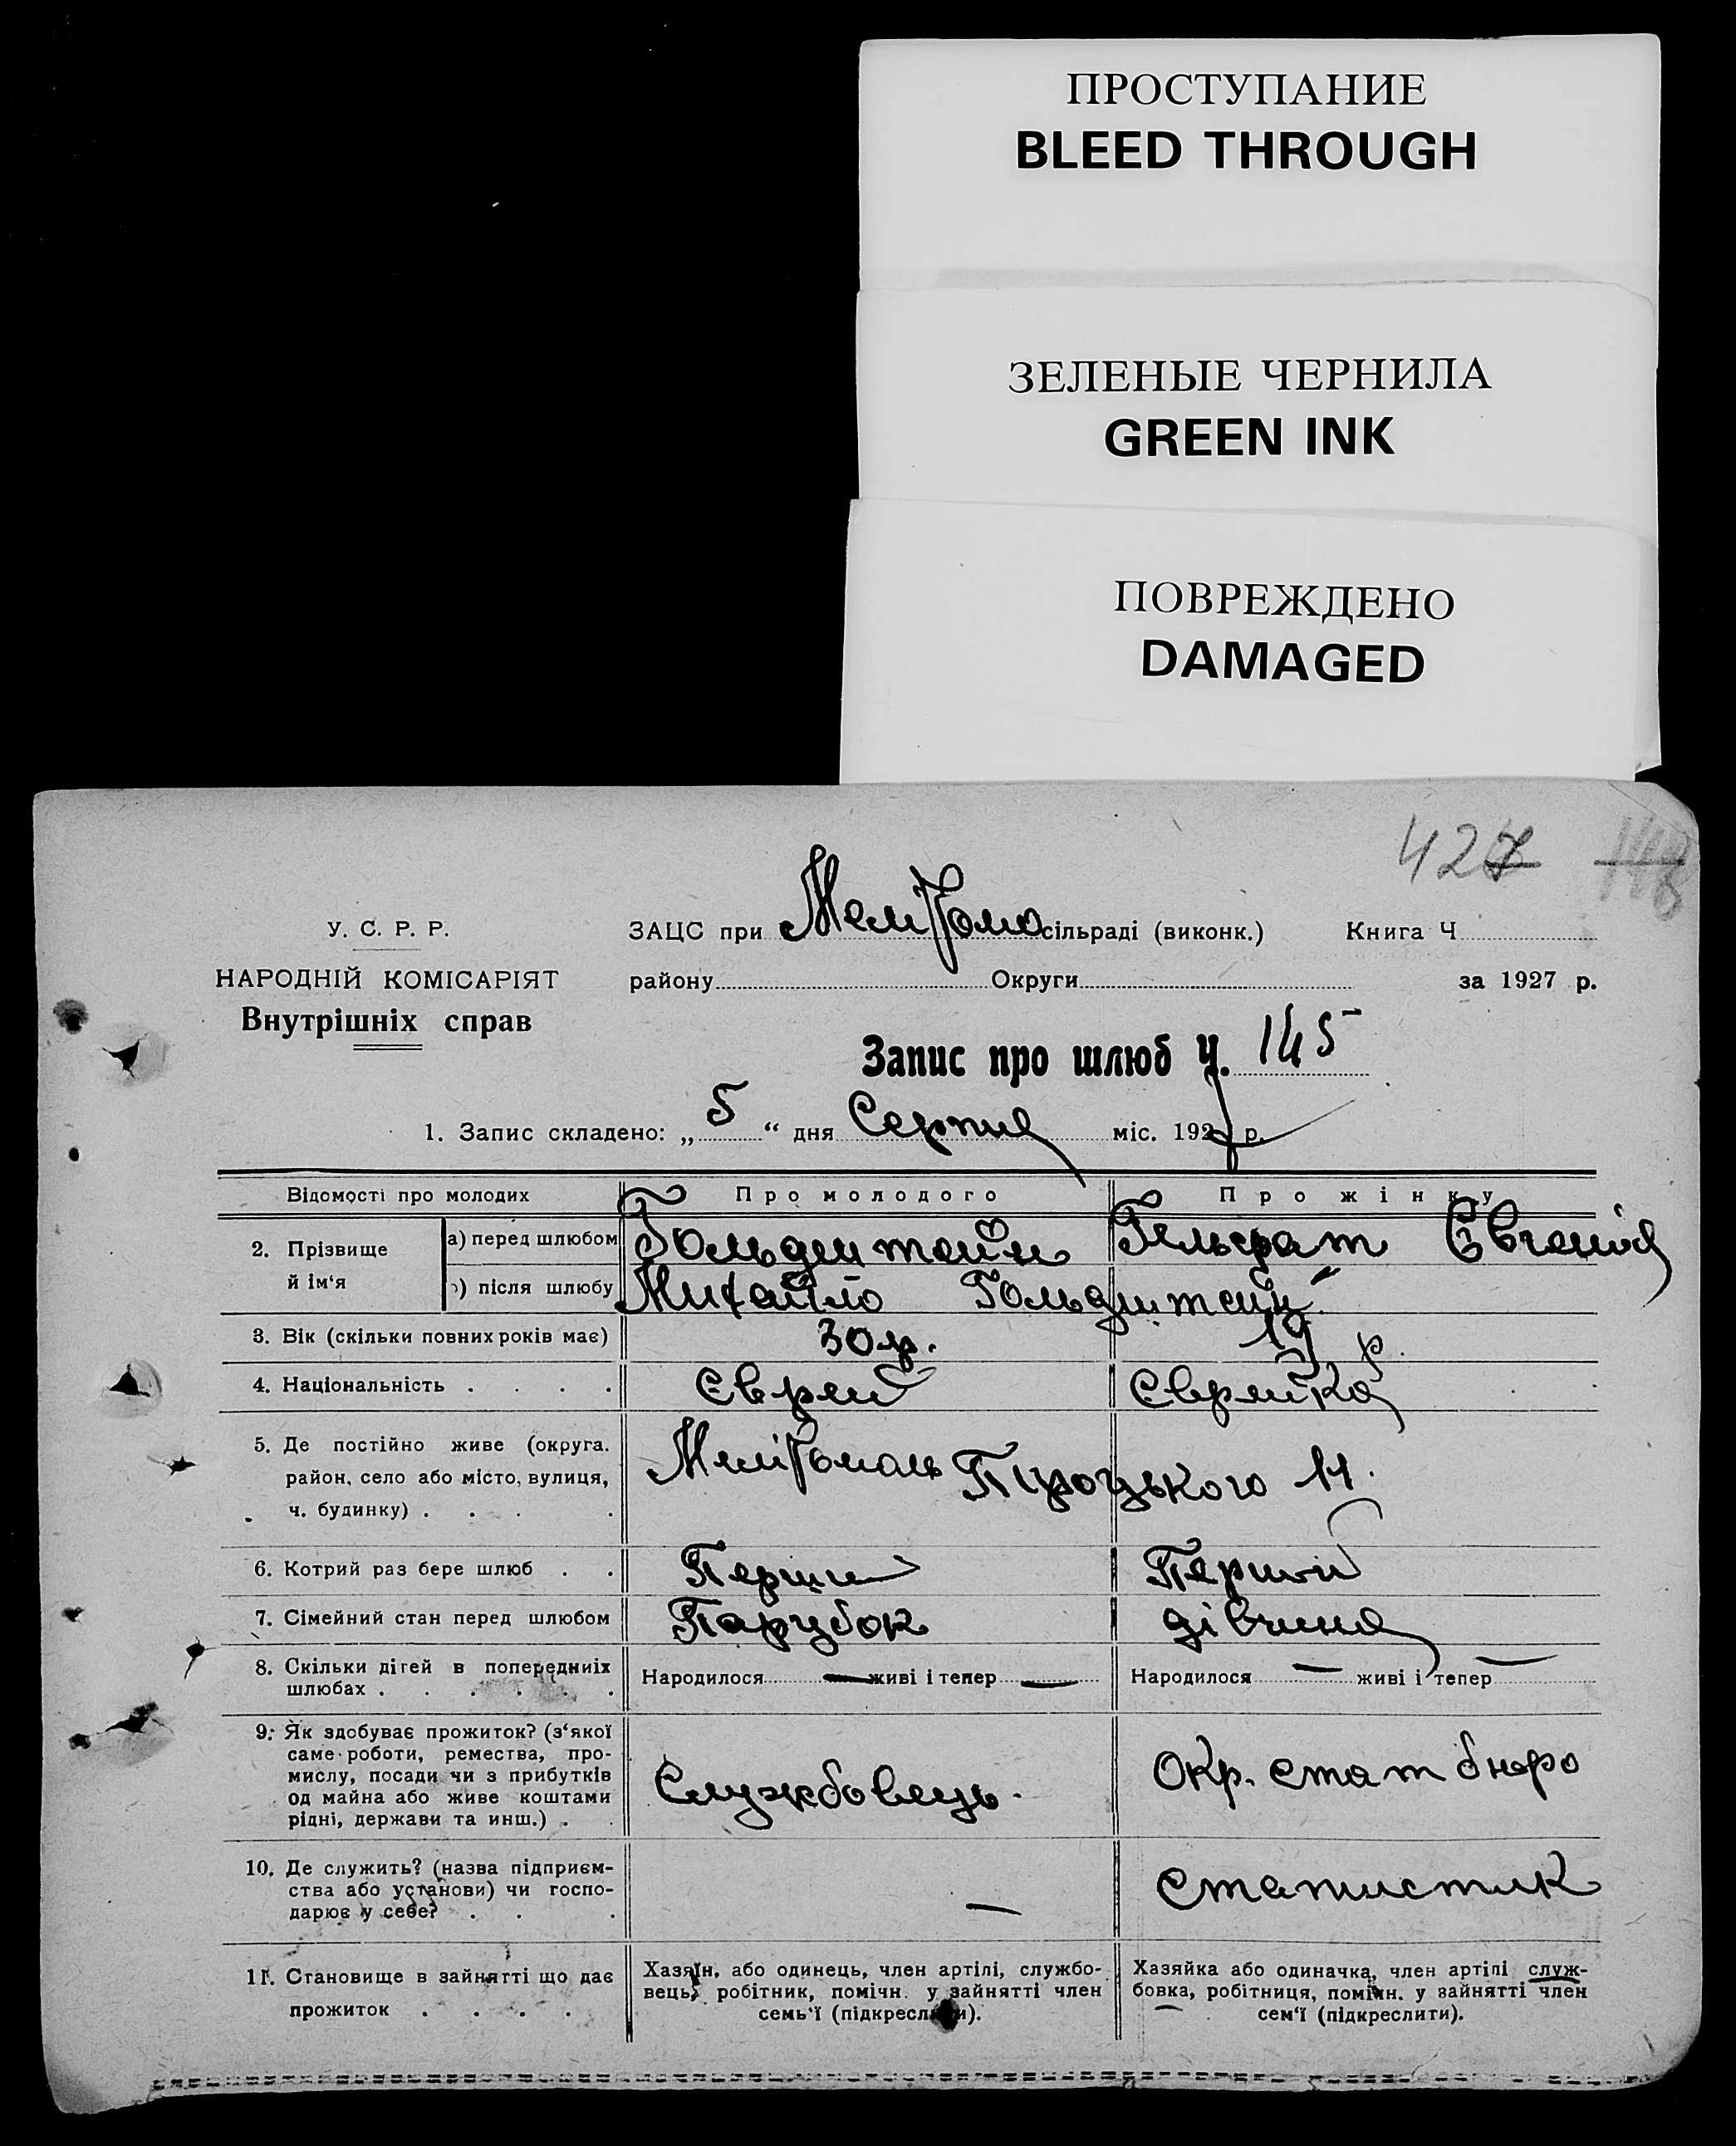 ПРОСТУПАНИЕ
BLEED THROUGH
ЗЕЛЕНЫЕ ЧЕРНИЛА
GREEN INK
ПОВРЕЖДЕНО
DAMAGED
427
У. С. Р. Р.
НАРОДНІЙ КОМІСАРІЯТ
Внутрішніх справ
ЗАЦС при сільраді (виконк.) Книга Ч.
району Округи за 1927 р.
Запис про шлюб Ч. 145
1. Запис складено: „ 5 “ дня Серпня міс. 1927 р.
Відомості про молодих Про молодого Про жінку
2. Прізвище й ім‘я а) перед шлюбом Гольдштейн Гельфат Євгенія
б) після шлюбу Михайло Гольдштейн
3. Вік (скільки повних років має) 30 р. 19 р.
4. Національність . . . . Єврей Єврейка
5. Де постійно живе (округа.
район, село або місто, вулиця,
ч. будинку) . . . . Мелітополь Троцького 14.
6. Котрий раз бере шлюб . . Перший Перший
7. Сімейний стан перед шлюбом Парубок дівчина
8. Скільки дітей в попередниіх
шлюбах . . . . . . Народилося — живі і тепер — Народилося — живі і тепер —
9. Як здобуває прожиток? (з‘якої
саме роботи, ремества, про-
мислу, посади чи з прибутків
од майна або живе коштами
рідні, держави та инш.) . . Службовець. Окр. стат бюро
10. Де служить? (назва підприєм-
ства або установи) чи госпо-
дарює у себе? . . . — статистик
11. Становище в зайнятті що дає
прожиток . . . .
Хазяїн, або одинець, член артілі, службо-
вець, робітник, помічн. у зайнятті член
семь‘ї (підкреслити).
Хазяйка або одиначка, член артілі служ-
бовка, робітниця, помічн. у зайнятті член
сем‘ї (підкреслити).